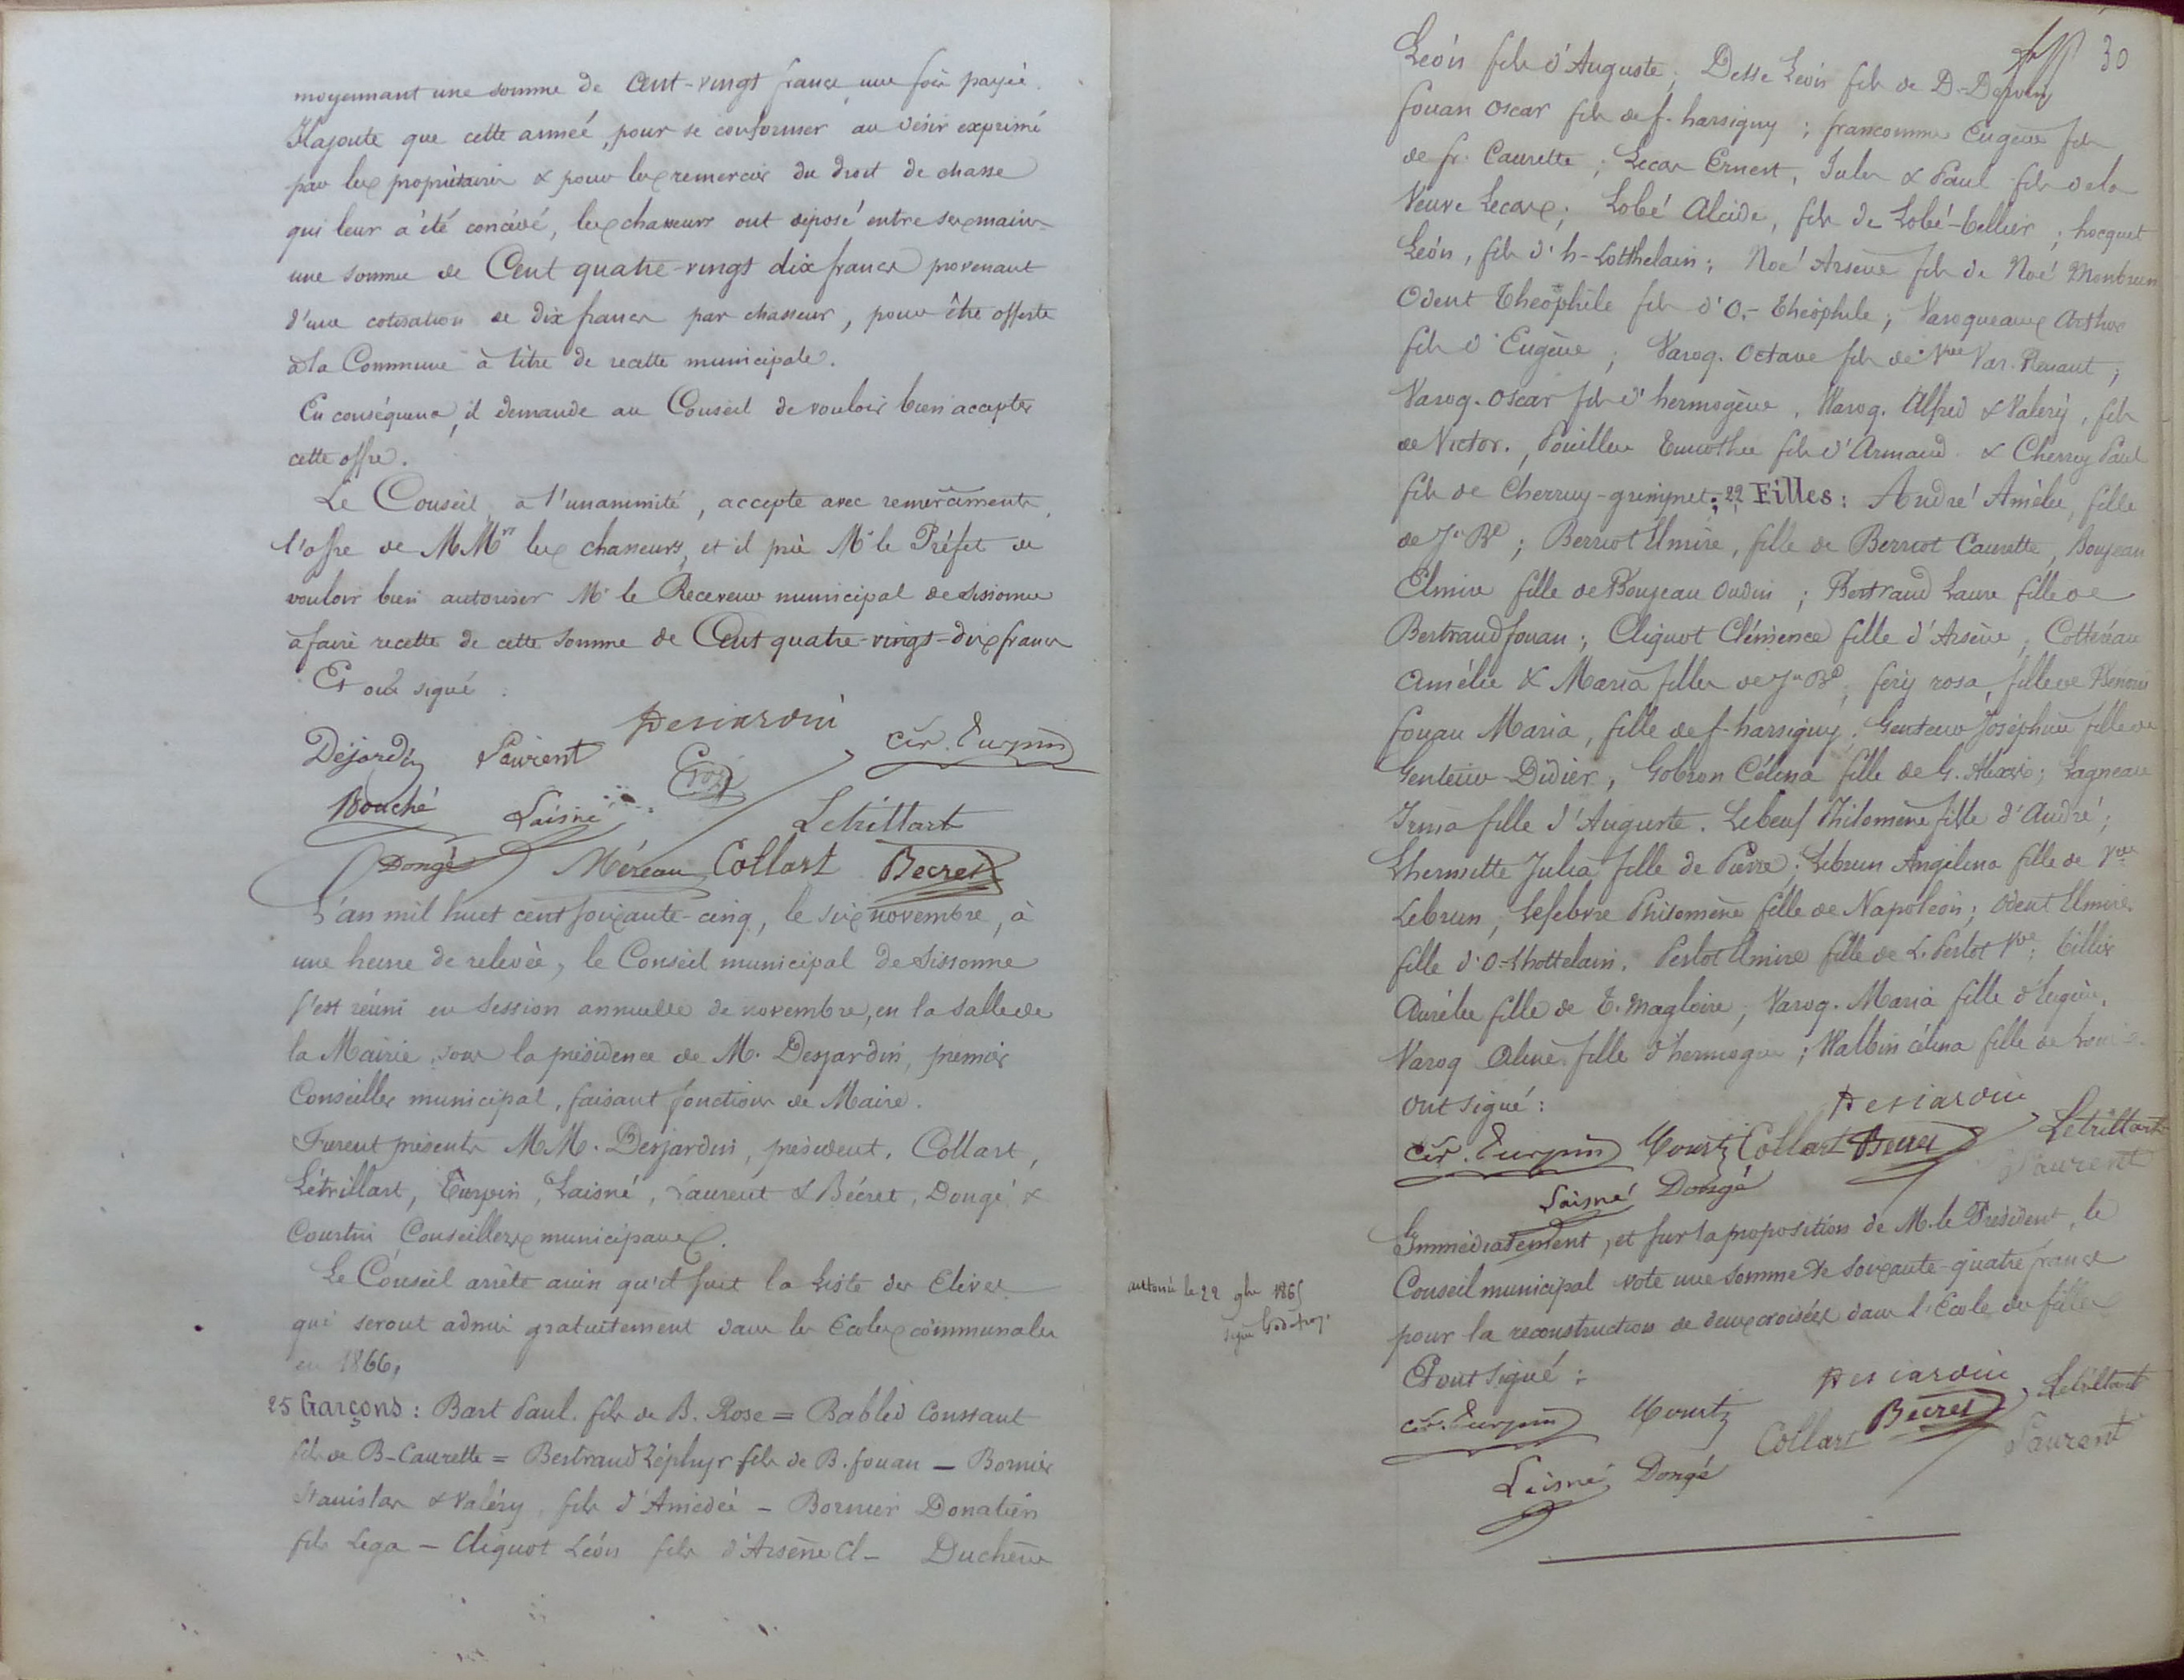 moyennant une somme de Cent-vingt francs une fois payée.
Il ajoute que cette année, pour se conformer au désir exprimé
par les propriétaires & pour les remercier du droit de chasse
qui leur a été concédé, les chasseurs ont déposé entre ses mains
une somme de Cent quatre-vingt dix francs provenant
d'une cotisation de dix francs par chasseur, pour être offerte
à la Commune à titre de recette municipale.
En conséquence, il demande au Conseil de vouloir bien accepter
cette offre.
Le Conseil, à l'unanimité, accepte avec remerciments,
l'offre de MMrs les chasseurs, et il prie Mr le Préfet de
vouloir bien autoriser Mr le Receveur municipal de Sissonne
à faire recette de cette somme de Cent quatre-vingt-dix francs
Et ont signé.
Desjardin
Déjardin Laurent Cér. Turpin
Bouché Laisné Létrillart
Dongé Méreau Collart Becret
L'an mil huit cent soixante-cinq, le six novembre, à
une heure de relevée, le Conseil municipal de Sissonne
s'est réuni en session annuelle de novembre, en la salle de
la Mairie, sous la présidence de M. Desjardin, premier
Conseiller municipal, faisant fonctions de Maire.
Furent présents MM. Desjardin, président, Collart,
Létrillart, Turpin, Laisné, Laurent & Bécret, Dongé &
Courtin Conseillers municipaux.
Le Conseil arrête ainsi qu'il suit la liste des Elèves
qui seront admis gratuitement dans les Ecoles communales
en 1866,
25 Garçons : Bart Paul. fils de B. Rose = Babled Constant
fils de B-Caurette = Bertrand Zéphyr fils de B. fouan — Bornier
Stanislas & Valéry, fils d'Amédée — Bornier Donatien
fils Lega — Cliquot Léon fils d'Arsène Cl — Duchêne
30
Léon fils d'Auguste; Desse Léon fils de D-
fouan Oscar fils de f. harsigny ; francomme Eugène fils
de fr. Caurette ; Lecas Ernest, Jules & Paul fils de la
Veuve Lecas; Lobé Alcide, fils de Lobé-tellier ; hocquet
Léon, fils d'h-Lotthelain; Noé Arsène fils de Noé Monbrun
Odent Théophile fils d'O.-Théophile; Varoqueaux Arthur
fils d'Eugène ; Varoq. Octave fils de Vve Var. ;
Varoq. Oscar fils d'hermogène. Waroq. Alfred & Valery, fils
de Victor., Pouillon fils d'Armand & Cherruy Paul
fils de Cherruy-gringnet; 22 Filles : André Amélie, fille
de Jn Bte ; Berriot Elmire, fille de Berriot Caurette, Boujeau
Elmire fille de Boujeau Oudin ; Bertrand Laure fille de
Bertrand fouan ; Cliquot Clémence fille d'Arsène, Cottereau
Amélie & Maria filles de Jn Bte, féry rosa, fille de
fouan Maria, fille de f. harsigny. Genteur Joséphine fille de
Genteur-Didier, Gobron Célina fille de G. Alexis; Lagneau
Irma fille d'Auguste. Lebeuf Philomène fille d'André;
Lhermitte Julia fille de Pierre; Lebrun Angelina fille de Vve
Lebrun, Lefebvre Philomène fille de Napoléon; Odent Elmire
fille d'O-Lhottelain. Perlot Elmire fille de L. Perlot Vve; tillier
Aurélie fille de T. Magloire, Varoq. Maria fille d'Eugène,
Varoq Aline fille d'hermogène ; Walbin célina fille de Louis.
Ont signé :
Desjardin
Cér. Turpin Collart Becret Létrillart
Laurent
Laisné Dongé
Immédiatement, et sur la proposition de M. le Président, le
Conseil municipal vote une somme de soixante-quatre francs
pour la reconstruction de deux croisées dans l'Ecole des filles
Et ont signé :
autorisé le 22 9bre 1865
signé
Desjardin Létrillart
Cér. Turpin Collart Becret Laurent
Laisné Dongé